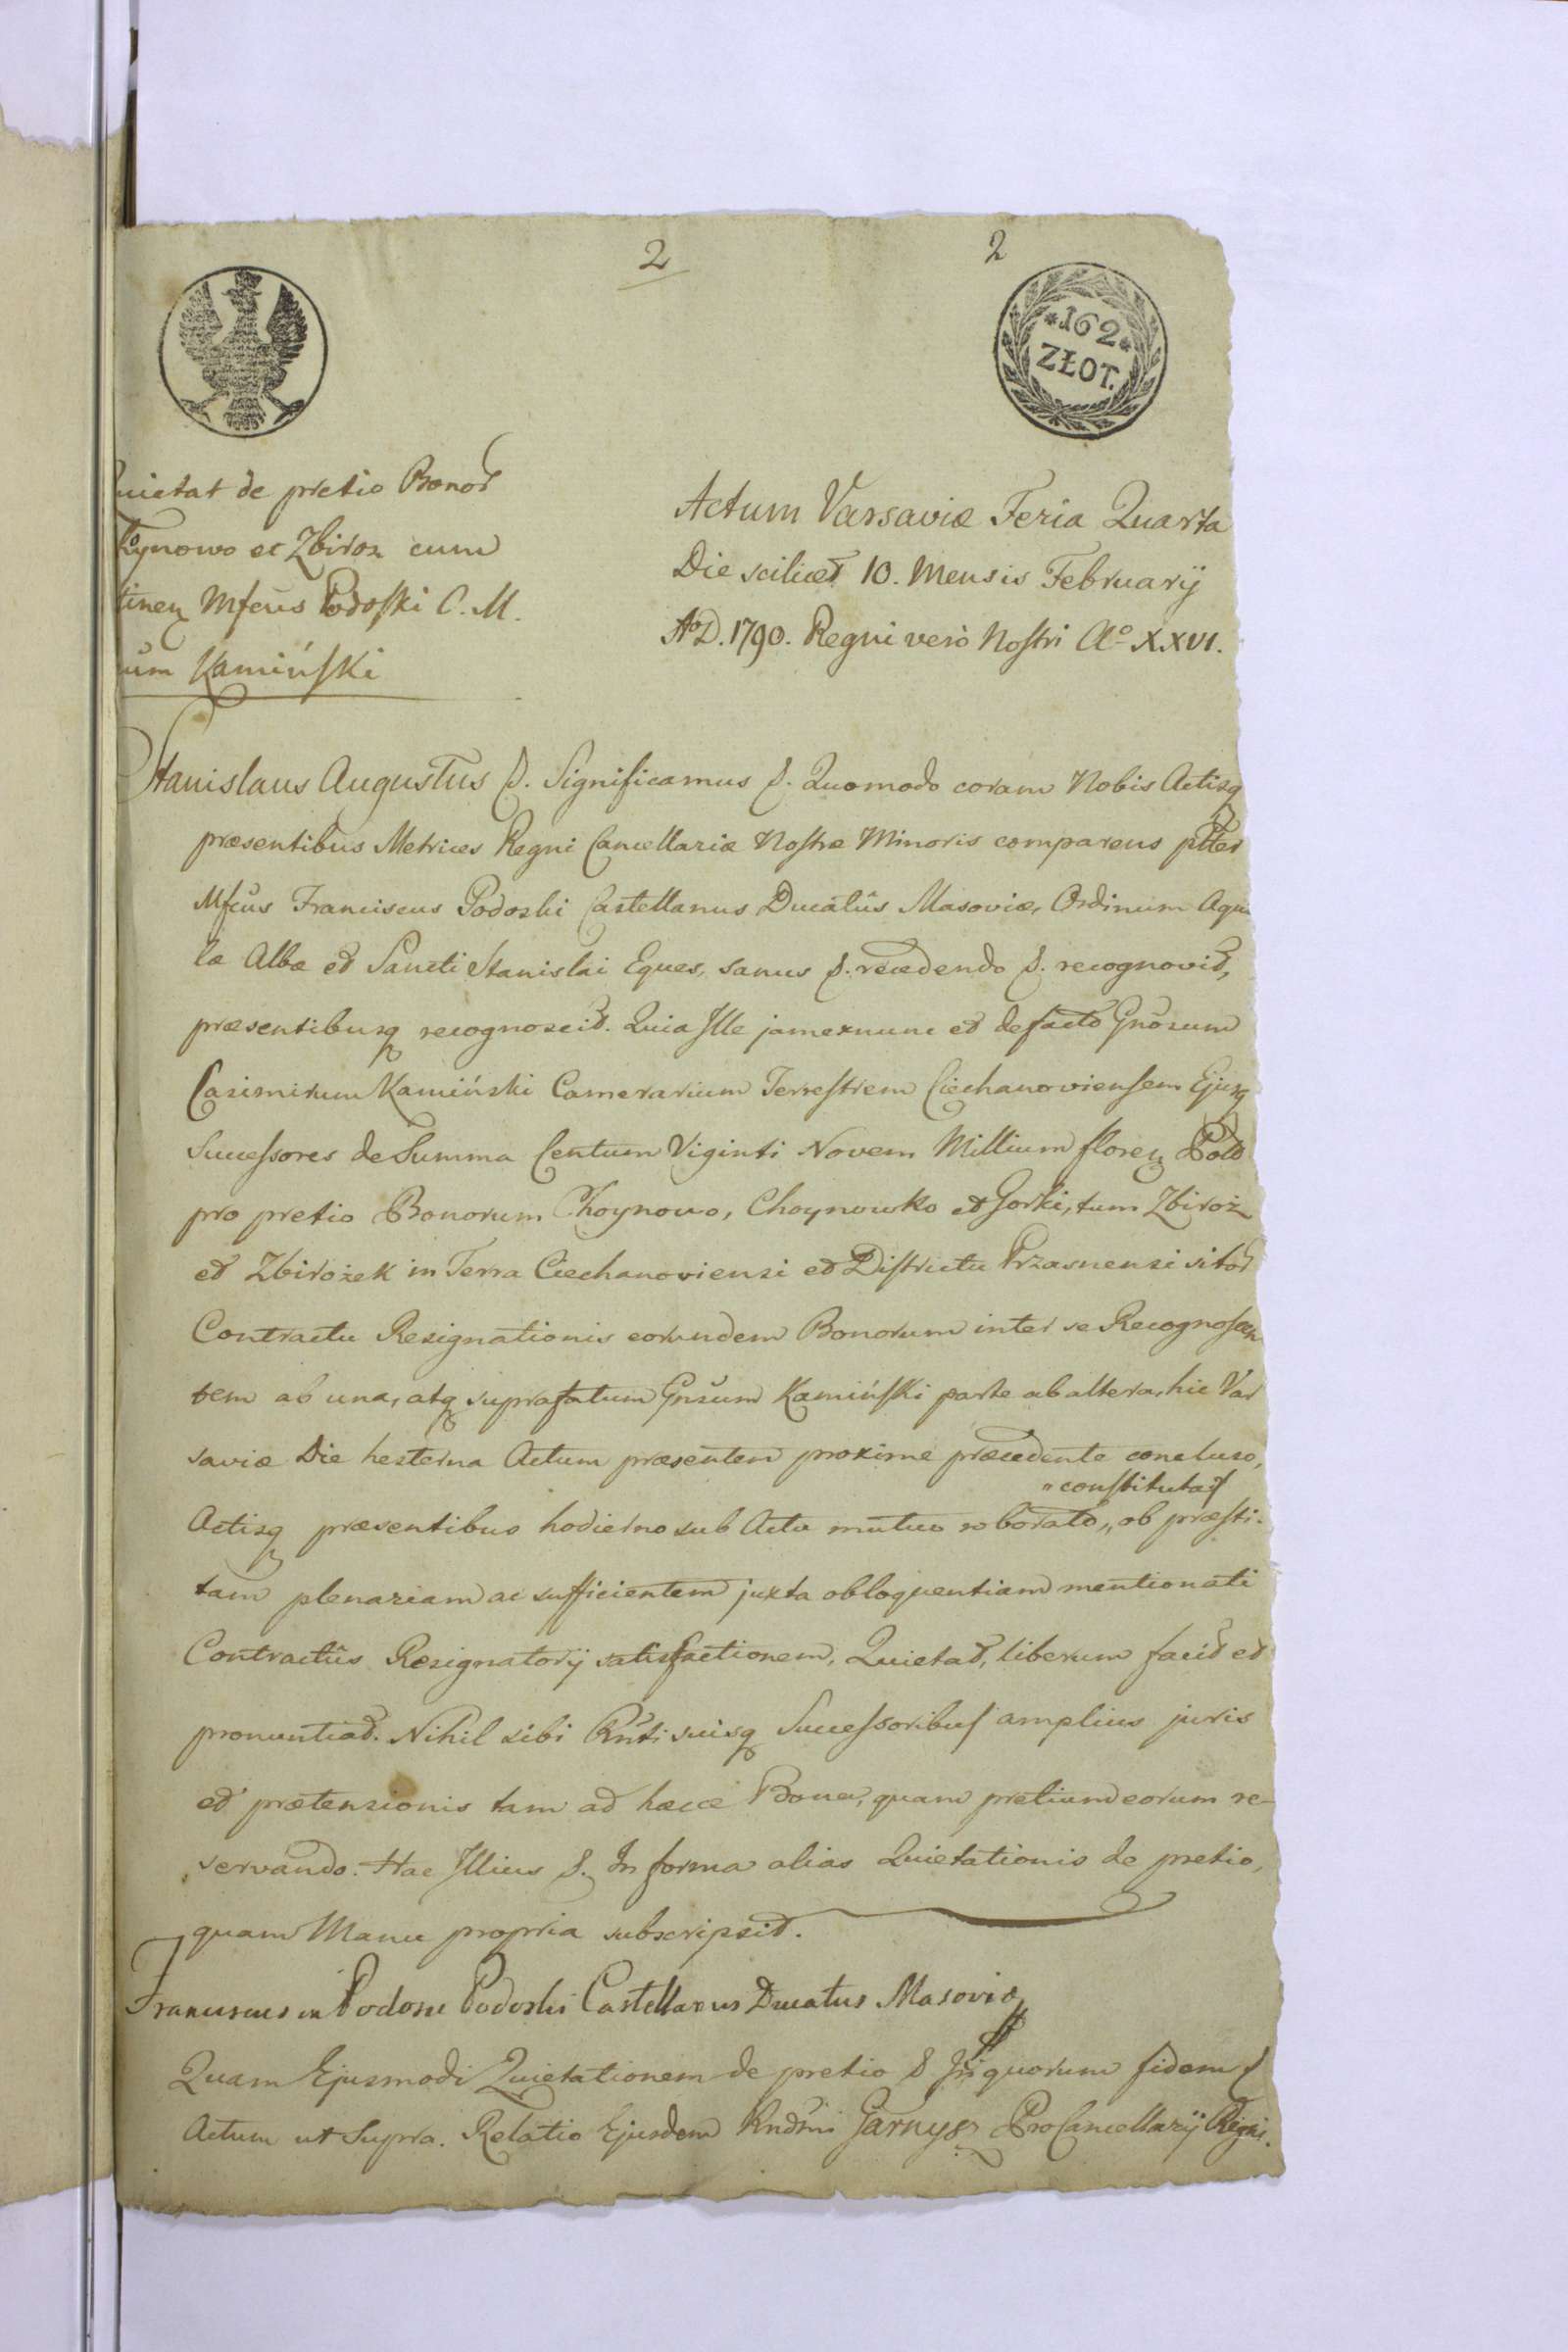 2
2
*162*
ZŁOT.
uietat de pretio Bonor
oynowo et Zbiroz cum
tinen Mfcus Podoski C. M.
um Kamiński
Actum Varsaviæ Feria Quarta
Die scilicet 10. Mensis Februarij
Aō D. 1790. Regni verò Nostri Aō XXVI.
Stanislaus Augustus &. Significamus &. Quomodo coram Nobis Actisq
præsentibus Metrices Regni Cancellariæ Nostræ Minoris comparens plter
Mfcus Franciscus Podoski Castellanus Ducatûs Masoviæ, Ordinum Aqui
læ Albæ et Sancti Stanislai Eques, sanus &. recedendo &. recognovit,
præsentibusq recognoscit. Quia Ille jam exnunc et de facto Gnosum
Casimirum Kamiński Camerarium Terrestrem Ciechanoviensem Ejusq
Successores de Summa Centum Viginti Novem Millium floren Pol
pro pretio Bonorum Choynowo, Choynowko et Gorki, tum Zbiroż
et Zbirożek in Terra Ciechanoviensi et Districtu Przasnensi sitor
Contractu Resignationis eorundem Bonorum inter se Recognoscen
tem ab una, atq suprafatum Gnsum Kamiński parte ab altera, hic Var
saviæ Die hesterna Actum præsentem proxime præcedente concluso,
" constitutas
Actisq præsentibus hodierno sub Actu mutuo roborato,, ob præsti-
tam plenariam ac sufficientem juxta obloquentiam mentionati
Contractûs Resignatorij satisfactionem, Quietat, liberum facit et
pronuntiat. Nihil sibi Rnti suisq Successoribus amplius juris
et prætensionis tam ad hæcce Bona, quam pretium eorum re-
servando. Hac Illius &. In forma alias Quietationis de pretio,
quam Manu propria subscripsit.
Franciscus in Podosie Podoski Castellanus Ducatus Masoviæ
Quam Ejusmodi Quietationem de pretio & In quorum fidem &
Actum ut Supra. Relatio Ejusdem Rndmi Garnysz ProCancellarij Regni.